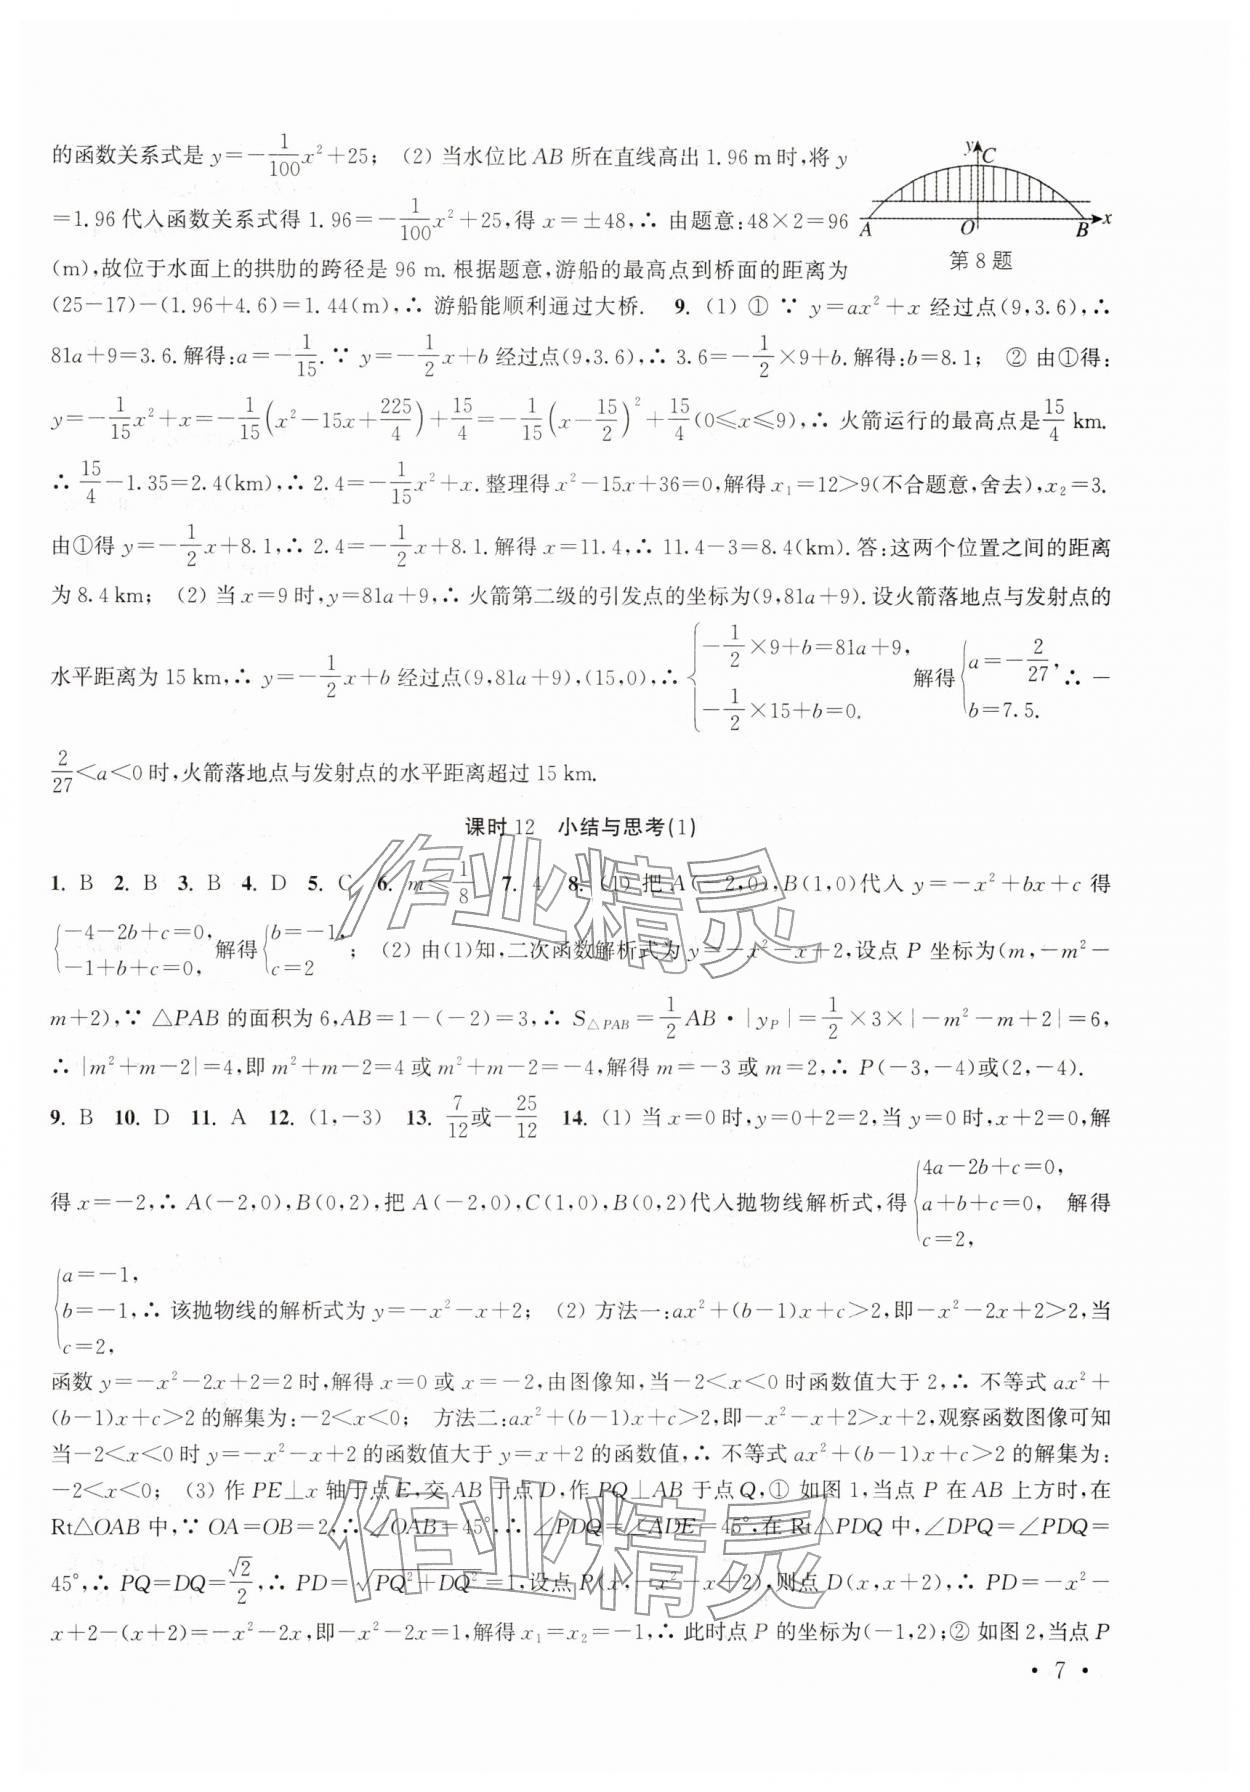 的函数关系式是 y=-1/100x²+25; (2) 当水位比 AB 所在直线高出 1.96 m 时,将 y
=1.96 代入函数关系式得 1.96=-1/100x²+25,得 x=±48,∴ 由题意:48×2=96
(m),故位于水面上的拱肋的跨径是 96 m. 根据题意,游船的最高点到桥面的距离为
y C A O B x
第 8 题
(25-17)-(1.96+4.6)=1.44(m),∴ 游船能顺利通过大桥. 9. (1) ① ∵ y=ax²+x 经过点(9,3.6),∴
81a+9=3.6.解得:a=-1/15.∵ y=-1/2x+b 经过点(9,3.6),∴ 3.6=-1/2×9+b.解得:b=8.1; ② 由①得:
y=-1/15x²+x=-1/15(x²-15x+225/4)+15/4=-1/15(x-15/2)²+15/4(0≤x≤9),∴ 火箭运行的最高点是15/4 km.
∴ 15/4-1.35=2.4(km),∴ 2.4=-1/15x²+x.整理得 x²-15x+36=0,解得 x₁=12>9(不合题意,舍去),x₂=3.
由①得 y=-1/2x+8.1,∴ 2.4=-1/2x+8.1.解得 x=11.4,∴ 11.4-3=8.4(km).答:这两个位置之间的距离
为 8.4 km; (2) 当 x=9 时,y=81a+9,∴ 火箭第二级的引发点的坐标为(9,81a+9).设火箭落地点与发射点的
水平距离为 15 km,∴ y=-1/2x+b 经过点(9,81a+9),(15,0),∴ {-1/2×9+b=81a+9, -1/2×15+b=0. 解得{a=-2/27, b=7.5. ∴ -
2/27<a<0 时,火箭落地点与发射点的水平距离超过 15 km.
课时 12 小结与思考(1)
1. B 2. B 3. B 4. D 5. C 6. m≤1/8 7. 4 8. (1) 把 A(-2,0),B(1,0)代入 y=-x²+bx+c 得
{-4-2b+c=0, -1+b+c=0, 解得{b=-1, c=2; (2) 由(1)知,二次函数解析式为 y=-x²-x+2,设点 P 坐标为(m,-m²-
m+2),∵ △PAB 的面积为 6,AB=1-(-2)=3,∴ S△PAB=1/2AB·|yP|=1/2×3×|-m²-m+2|=6,
∴ |m²+m-2|=4,即 m²+m-2=4 或 m²+m-2=-4,解得 m=-3 或 m=2,∴ P(-3,-4)或(2,-4).
9. B 10. D 11. A 12. (1,-3) 13. 7/12或-25/12 14. (1) 当 x=0 时,y=0+2=2,当 y=0 时,x+2=0,解
得 x=-2,∴ A(-2,0),B(0,2),把 A(-2,0),C(1,0),B(0,2)代入抛物线解析式,得{4a-2b+c=0, a+b+c=0, c=2, 解得
{a=-1, b=-1, c=2, ∴ 该抛物线的解析式为 y=-x²-x+2; (2) 方法一:ax²+(b-1)x+c>2,即-x²-2x+2>2,当
函数 y=-x²-2x+2=2 时,解得 x=0 或 x=-2,由图像知,当-2<x<0 时函数值大于 2,∴ 不等式 ax²+
(b-1)x+c>2 的解集为:-2<x<0; 方法二:ax²+(b-1)x+c>2,即-x²-x+2>x+2,观察函数图像可知
当-2<x<0 时 y=-x²-x+2 的函数值大于 y=x+2 的函数值,∴ 不等式 ax²+(b-1)x+c>2 的解集为:
-2<x<0; (3) 作 PE⊥x 轴于点 E,交 AB 于点 D,作 PQ⊥AB 于点 Q,① 如图 1,当点 P 在 AB 上方时,在
Rt△OAB 中,∵ OA=OB=2,∴ ∠OAB=45°,∴ ∠PDQ=∠ADE=45°,在 Rt△PDQ 中,∠DPQ=∠PDQ=
45°,∴ PQ=DQ=√2/2,∴ PD=√(PQ²+DQ²)=1,设点 P(x,-x²-x+2),则点 D(x,x+2),∴ PD=-x²-
x+2-(x+2)=-x²-2x,即-x²-2x=1,解得 x₁=x₂=-1,∴ 此时点 P 的坐标为(-1,2);② 如图 2,当点 P
· 7 ·
作业精灵
作业精灵